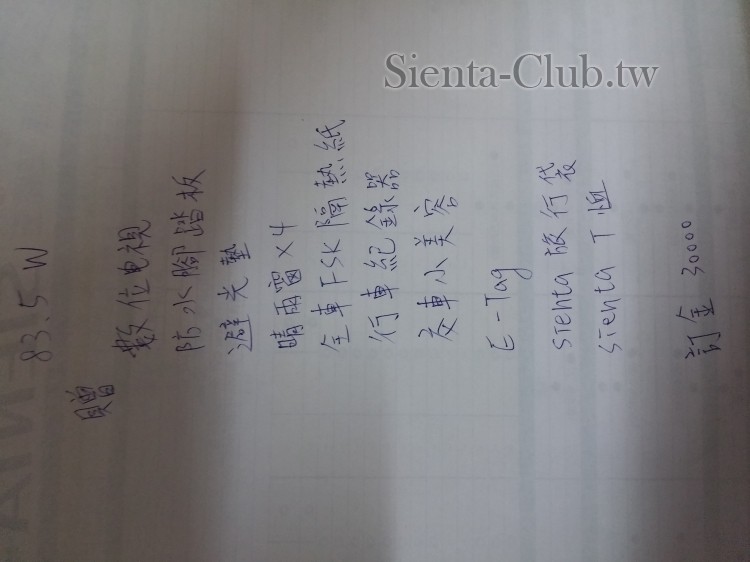 Sienta-Club.tw
83.5 W
贈
數位电視
防水腳踏板
避光墊
晴雨窗×4
全車FSK隔熱紙
行車紀錄器
交車小美容
E-Tag
sienta 旅行袋
sienta T恤
訂金 30000